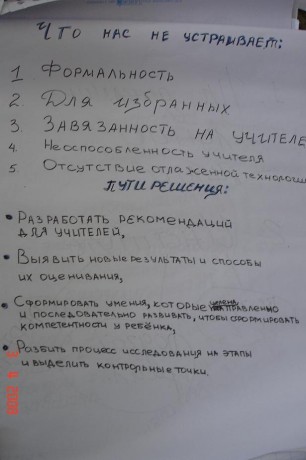 Что нас не устраивает:
1 Формальность
2. Для избранных
3. Завязанность на учителе
4. Неоспособленность учителя
5. Отсутствие отлаженной технологии
Пути решения:
• Разработать рекомендаций
для учителей,
• Выявить новые результаты и способы
их оценивания,
• Сформировать умения, которые
и последовательно развивать, чтобы сформировать
компетентности у ребёнка,
• Разбить процесс исследования на этапы
и выделить контрольные точки.